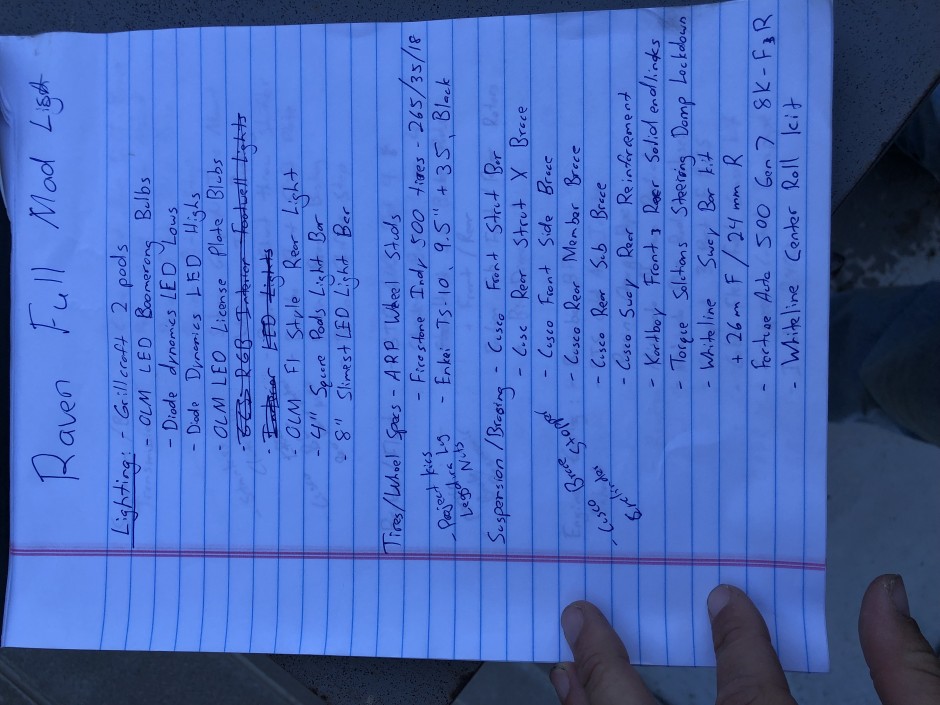 Raven Full Mod List
Lighting: - Grillcraft 2 pods
- OLM LED Boomerang Bulbs
- Diode dynamics LED Lows
- Diode Dynamics LED Highs
- OLM LED License Plate Blubs
- RGB Interior Footwell Lights
- LED Lights
- OLM F1 Style Rear Light
- 4" Square Pods Light Bar
8" Slimest LED Light Bar
Tires/Wheel Specs - ARP Wheel Studs
- Firestone Indy 500 tires - 265/35/18
- Enkei TS-10, 9.5" +35, Black
- Project Kics
Lug
Nuts
Suspension/Bracing - Cusco Front Strut Bar
- Cusc Rear Strut X Brace
- Cusco Front Side Brace
- Cusco Rear Member Brace
- Cusco Rear Sub Brace
- Cusco Sway Rear Reinforement
- Kartboy Front & Rear Solid endlinks
- Torque Solutions Steering Damp Lockdown
- Whiteline Sway Bar kit
+ 26mm F / 24mm R
- Fortune Auto 500 Gen 7 8K - F & R
- Whiteline Center Roll kit
Brace
- Cusco